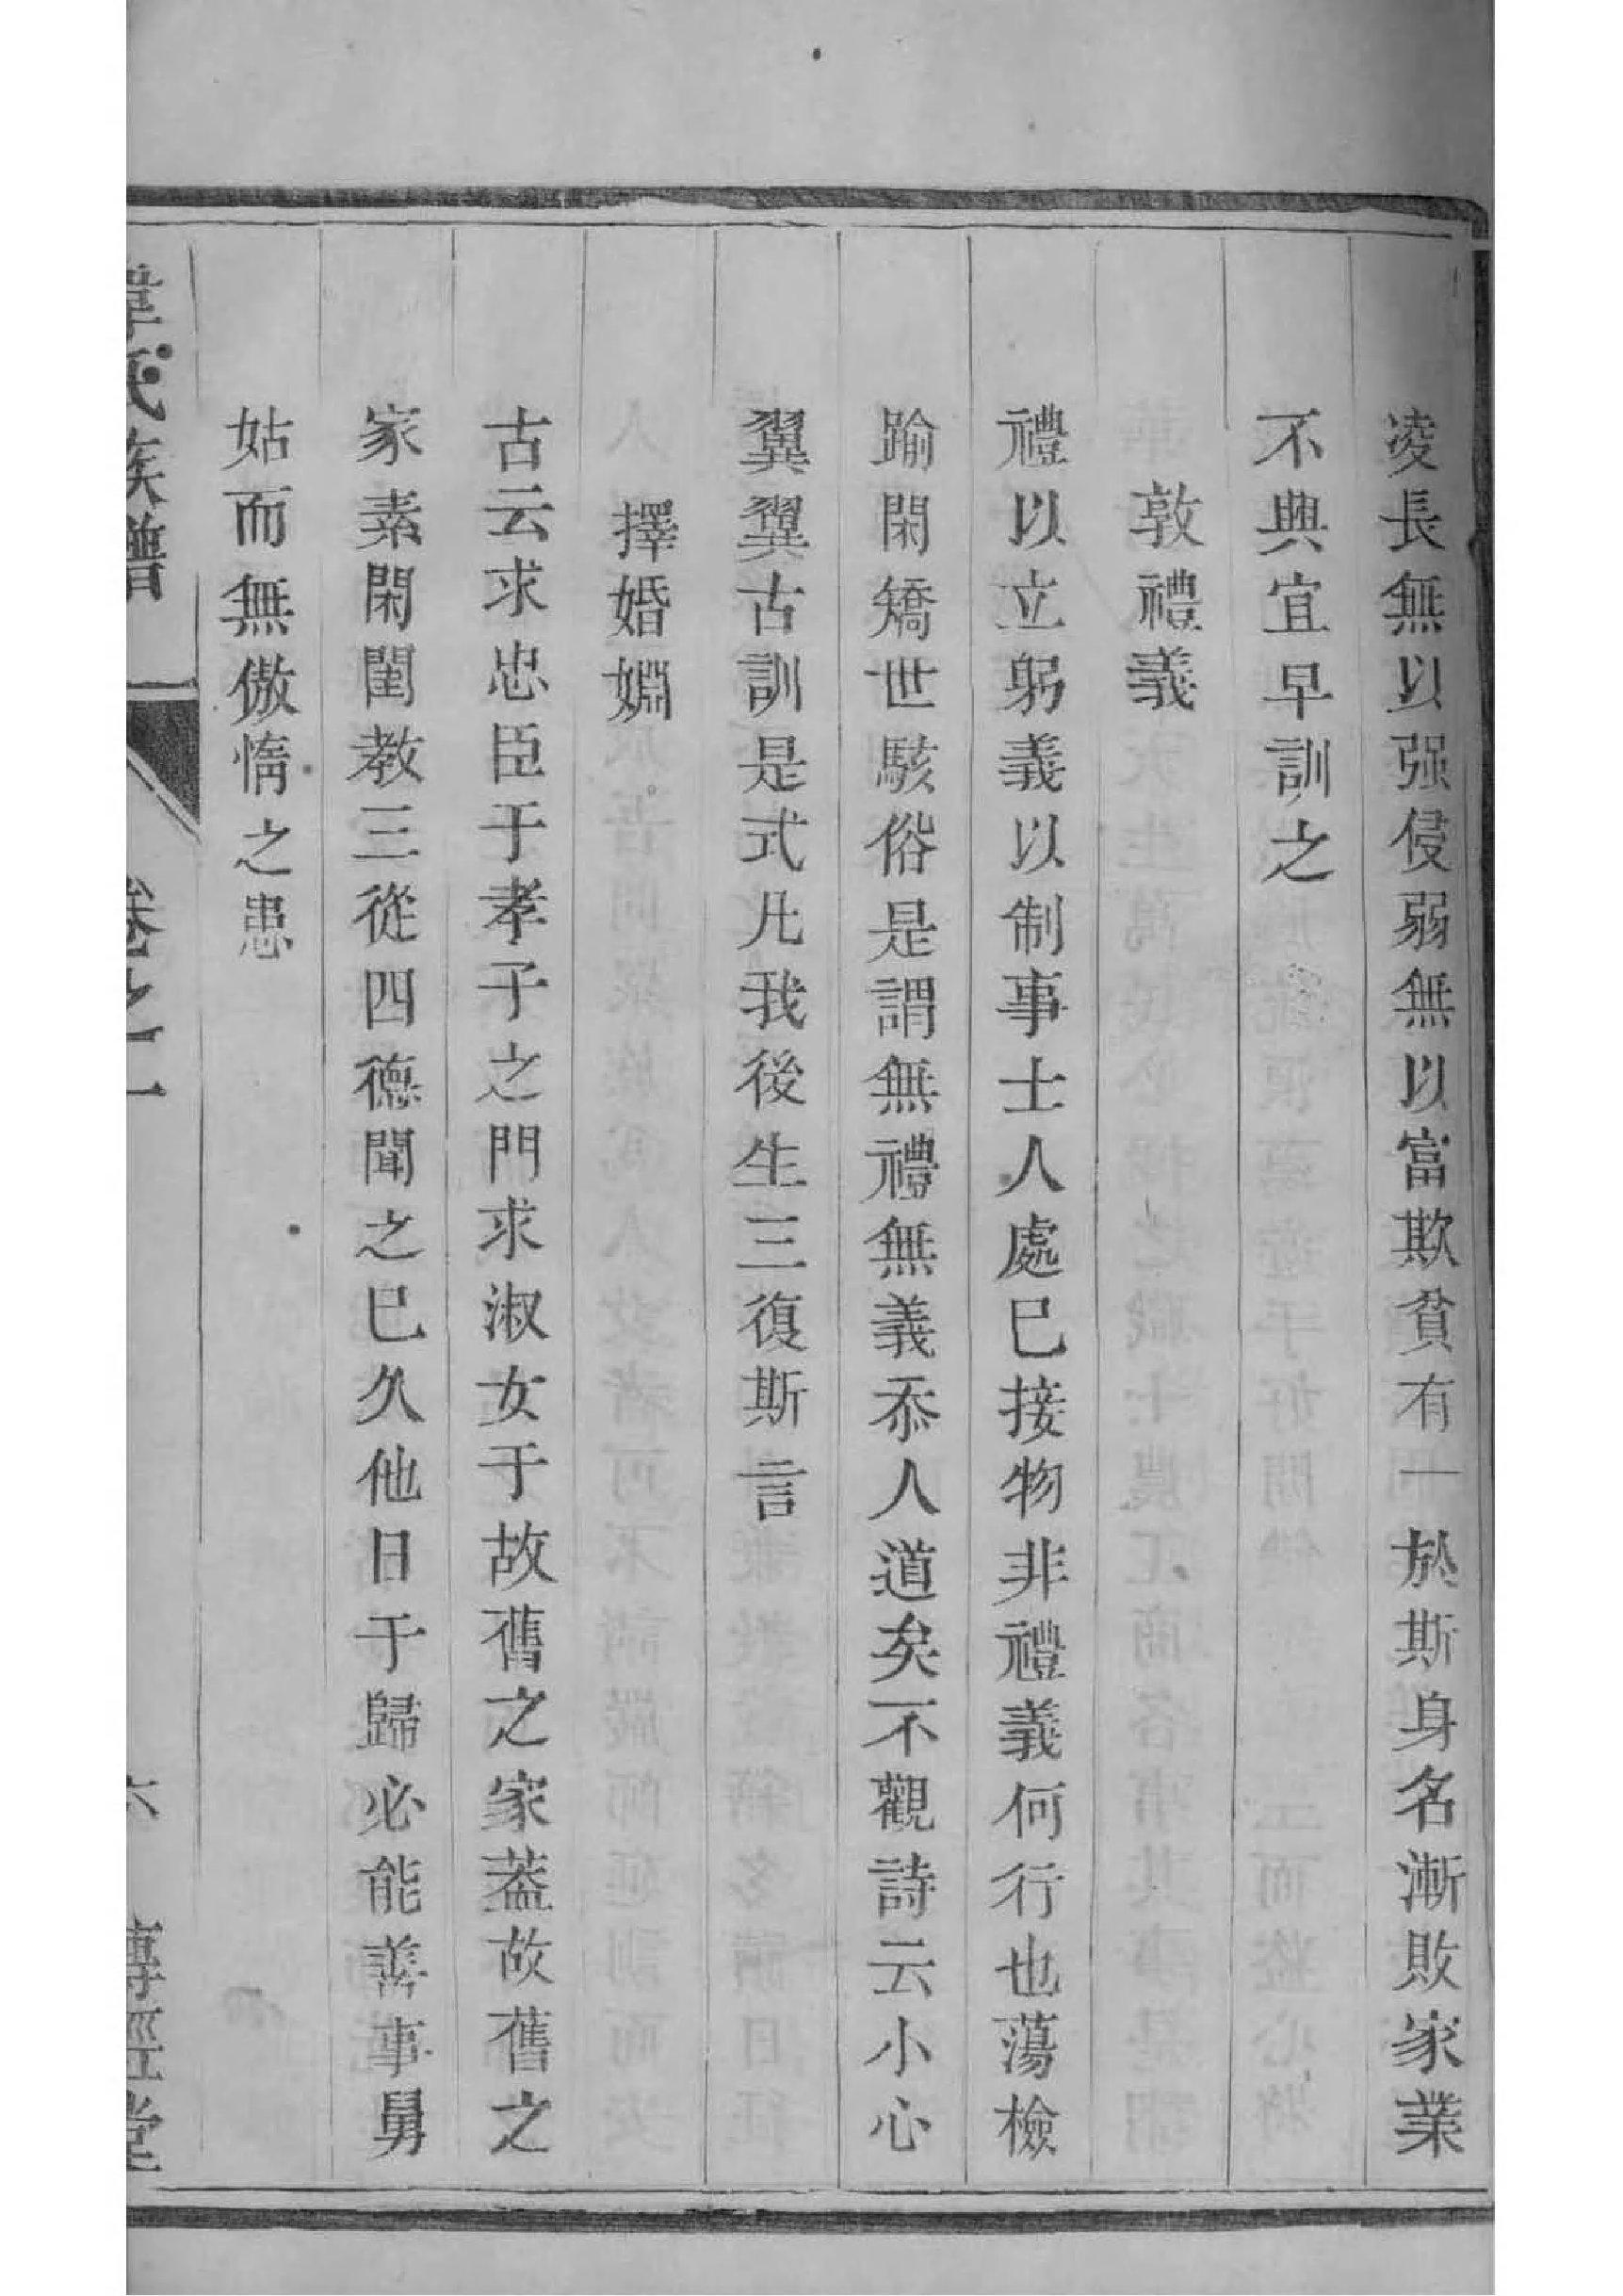 凌長無以强侵弱無以富欺貧有一於斯身名漸敗家業
不興宜早訓之
敦禮義
禮以立躬義以制事士人處巳接物非禮義何行也蕩檢
踰閑矯世駭俗是謂無禮無義忝人道矣不觀詩云小心
翼翼古訓是式凡我後生三復斯言
擇婚姻
古云求忠臣于孝子之門求淑女于故舊之家葢故舊之
家素閑閨教三從四德聞之巳久他日于歸必能善事舅
姑而無傲惰之患
氏族譜 卷之一 六 傳經堂